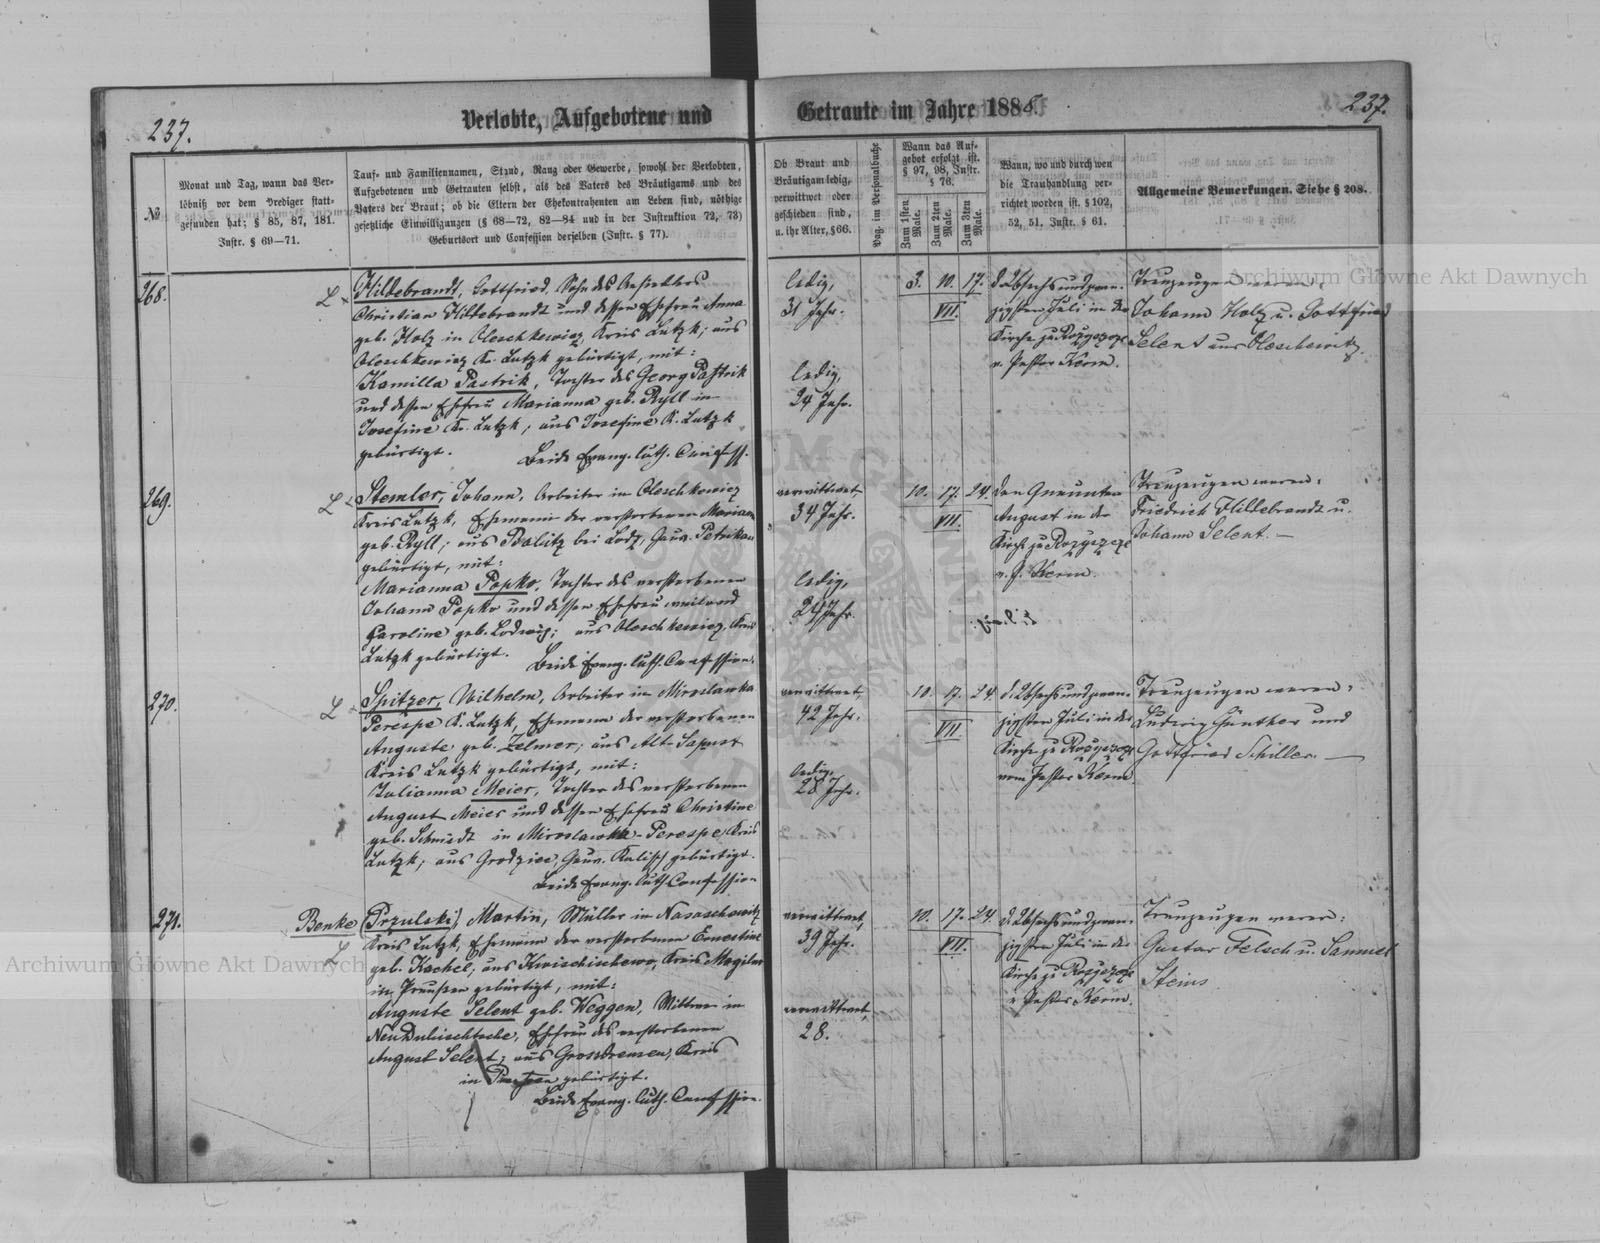 237.
Verlobte, Aufgebotene und
Getraute im Jahre 1888.
237.
№
Monat und Tag, wann das Ver-
löbniß vor dem Prediger statt-
gefunden hat; § 85, 87, 181.
Instr. § 69—71.
Tauf- und Familiennamen, Stand, Rang oder Gewerbe, sowohl der Verlobten,
Aufgebotenen und Getrauten selbst, als des Vaters des Bräutigams und des
Vaters der Braut; ob die Eltern der Ehekontrahenten am Leben sind, nöthige
gesetzliche Einwilligungen (§ 68—72, 82—84 und in der Instruktion 72, 73)
Geburtsort und Confession derselben (Instr. § 77).
Ob Braut und
Bräutigam ledig,
verwittwet oder
geschieden sind,
u. ihr Alter, § 66.
Pag. im Personalbuche
Wann das Auf-
gebot erfolgt ist.
§ 97, 98, Instr.
§ 76.
Zum 1sten Male.
Zum 2ten Male.
Zum 3ten Male.
Wann, wo und durch wen
die Trauhandlung ver-
richtet worden ist. § 102,
52, 51. Instr. § 61.
Allgemeine Bemerkungen. Siehe § 208.
268.
Hildebrandt, Gottfried, Sohn des Ansiedlers
Christian Hildebrandt und dessen Ehefrau Anna
geb. Holz in Oleschkewicz, Kreis Lutzk; aus
Oleschkewicz Kr. Lutzk gebürtigt, mit:
Kamilla Pastrik, Tochter des Georg Pastrik
und dessen Ehefrau Marianna geb. Ryll in
Josefine Kr. Lutzk; aus Josefine K. Lutzk
gebürtigt.
Beide Evang. luth. Confess.
ledig,
31 Jahr.
ledig,
24 Jahr.
3. 10. 17.
VII.
d. 26 sechsundzwan-
zigsten Juli in der
Kirche zu Rozyszcze
v. Pastor Kerm.
Trauzeugen waren:
Johann Holz u. Gottfried
Selent aus Oleschewitz.
269.
Stemler, Johann, Arbeiter in Oleschkewicz
Kreis Lutzk, Ehemann der verstorbenen Mariann
geb. Ryll; aus Balitz bei Lodz, Gouv. Petrikau
gebürtigt, mit:
Marianna Popko, Tochter des verstorbenen
Johann Popko und dessen Ehefrau weiland
Caroline geb. Ludwig; aus Oleschkewicz, Kreis
Lutzk gebürtigt.
Beide Evang. luth. Confession.
verwittwet
34 Jahr.
ledig,
24 Jahr.
10. 17. 24.
VII.
Den Neunten
August in der
Kirche zu Rozyszcze
v. P. Kerm.
Trauzeugen waren:
Friedrich Hillebrandt u.
Johann Selent. —
270.
Spitzer, Wilhelm, Arbeiter in Miroslawka
Perespe K. Lutzk, Ehemann der verstorbenen
Auguste geb. Zelmer; aus Alt-Sapust
Kreis Lutzk gebürtigt, mit:
Julianna Meier, Tochter des verstorbenen
August Meier und dessen Ehefrau Christine
geb. Schmidt in Miroslawka-Perespe, Kreis
Lutzk; aus Grodziec, Gouv. Kalisch gebürtigt.
Beide Evang. luth Confession
verwittwet
42 Jahr.
ledig,
28 Jahr.
10. 17. 24.
VII
d. 26 sechsundzwan-
zigsten Juli in der
Kirche zu Rozyszcze
vom Pastor Kerm.
Trauzeugen waren:
Ludwig Günther und
Gottfried Schiller. —
271.
Benke (Przulski), Martin, Müller in Nasaschewitz
Kreis Lutzk, Ehemann der verstorbenen Ernestine
geb. Kachel; aus Kwischischewo, Kreis Mogilno
in Preußen gebürtigt, mit:
Auguste Selent geb. Weggen, Wittwe in
Neu Dubischtsche, Ehefrau des verstorbenen
August Selent; aus Grossdrensen, Kreis
in Preußen gebürtigt.
Beide Evang. luth. Confession.
verwittwet,
39 Jahr.
verwittwet,
28.
10. 17. 24.
VII.
d. 26 sechsundzwan-
zigsten Juli in der
Kirche zu Rozyszcze
v. Pastor Kerm.
Trauzeugen waren:
Gustav Felsch u. Samuel
Steins
Archiwum Główne Akt Dawnych
Archiwum Główne Akt Dawnych